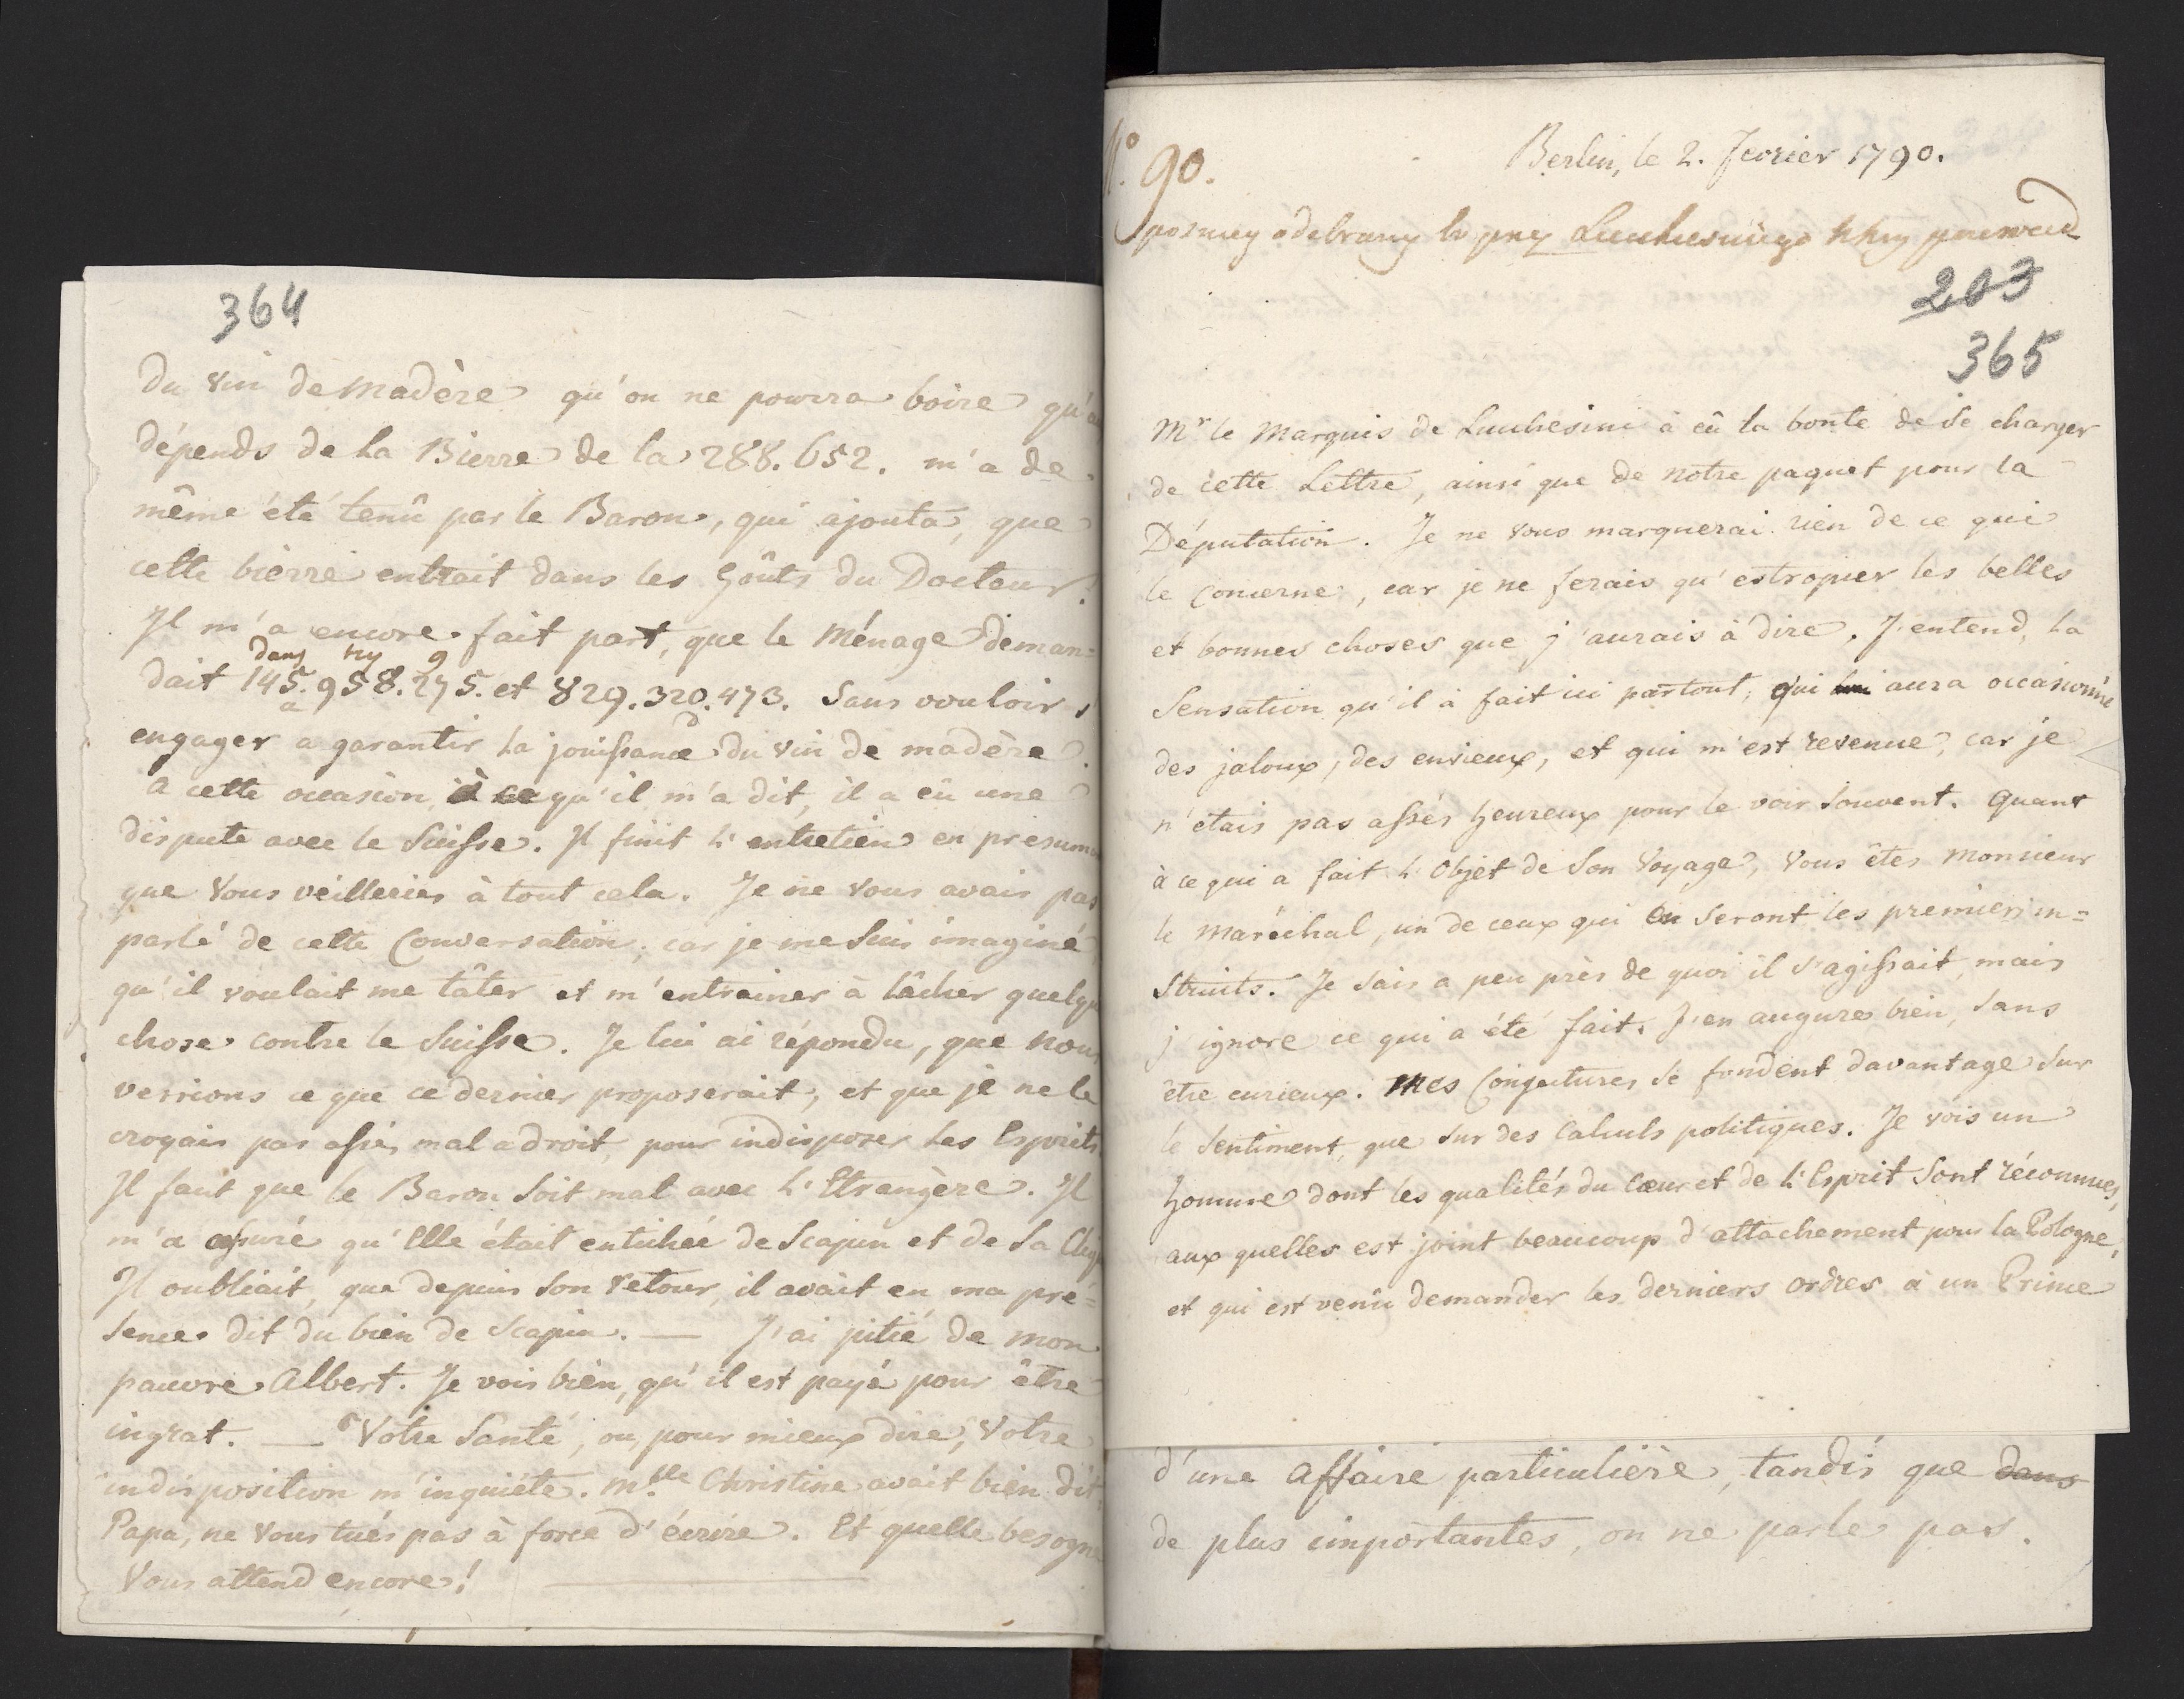 364
du vin de madère qu'on ne pourra boire qu'a
dépends de la Bierre de la 288. 652. m'a de
même été tenû par le Baron, qui ajouta, que
cette bierre entrait dans les goûts du Docteur.
Il m'a encore fait part, que le Ménage deman=
dans ny 9
dait 145. 958. 275. et 829. 320. 473. Sans vouloir s'
a d
engager a garantir la jouissance du vin de madère.
A cette occasion, à ce qu'il m'a dit, il a eû une
dispute avec le Suisse. Il finit l'entretien en presum
que Vous veilleries à tout cela. Je ne Vous avais pas
parlé de cette Conversation, car je me suis imaginé
qu'il voulait me tâter et m'entrainer à lâcher quelqu
chose contre le Suisse. Je lui ai répondu, que nous
verrions ce que ce dernier proposerait, et que je ne le
croyais pas assés mal adroit, pour indisposer les Esprits
Il faut que le Baron soit mal avec l'Etrangère. Il
m'a assuré qu'Elle était entichée de Scapin et de sa
Il oubliait, que depuis son retour, il avait en ma pré=
sence dit du bien de Scapin. — J'ai pitié de mon
pauvre Albert. Je vois bien, qu'il est payé pour être
ingrat. — Votre Santé, ou, pour mieux dire, Votre
indisposition m'inquiéte. Mlle Christine avait bien dit,
Papa, ne Vous tués pas à force d'écrire. Et quelle besogne
Vous attend encore! —
No. 90.
Berlin, le 2. Fevrier 1790.
odebrany
203
365
Mr le Marquis de Lucchesini à eû la bonté de se charger
de cette Lettre, ainsi que de notre paquet pour la
Députation. Je ne Vous marquerai rien de ce qui
le Concerne, car je ne ferais qu'estropier les belles
et bonnes choses que j'aurais à dire. J'entend, la
Sensation qu'il à fait ici partout, qui lui aura occasionné
des jaloux, des envieux, et qui m'est revenue, car je
n'etais pas assés heureux pour le voir souvent. Quant
à ce qui a fait l'Objet de Son Voyage, Vous êtes Monsieur
le Maréchal, un de ceux qui en seront les premiers in=
struits. Je sais a peu près de quoi il s'agissait, mais
j'ignore ce qui a été fait. J'en augure bien, sans
être curieux. Mes Conjectures se fondent davantage sur
le sentiment, que sur des Calculs politiques. Je vois un
homme dont les qualités du Cœur et de l'Esprit sont réconnues,
aux quelles est joint beaucoup d'attachement pour la Pologne,
et qui est venû demander les derniers ordres à un Prince
d'une affaire particulière, tandis que dans
de plus importantes, on ne parle pas.